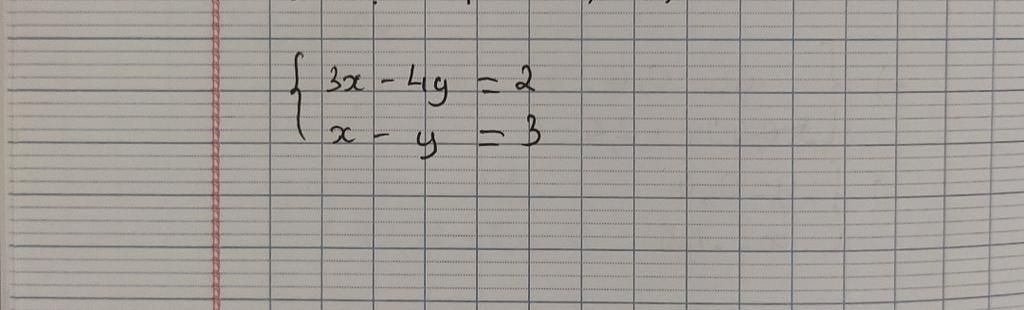 3x - 4y = 2
x - y = 3